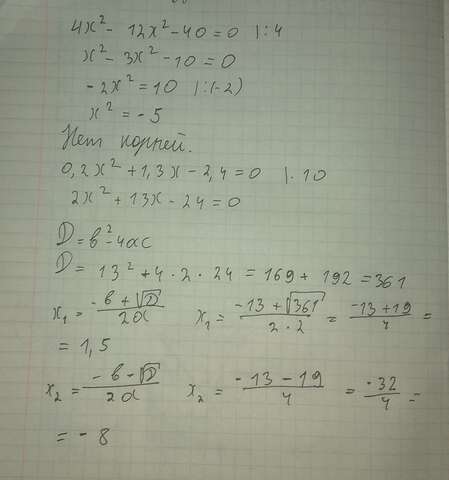 4x² - 12x² - 40 = 0 |:4
x² - 3x² - 10 = 0
-2x² = 10 |:(-2)
x² = -5
Нет корней.
0,2x² + 1,3x - 2,4 = 0 |· 10
2x² + 13x - 24 = 0
D = b² - 4ac
D = 13² + 4 · 2 · 24 = 169 + 192 = 361
x₁ = (-b + √D)/2a x₁ = (-13 + √361)/(2 · 2) = (-13 + 19)/4 =
= 1,5
x₂ = (-b - √D)/2a x₂ = (-13 - 19)/4 = -32/4 =
= -8